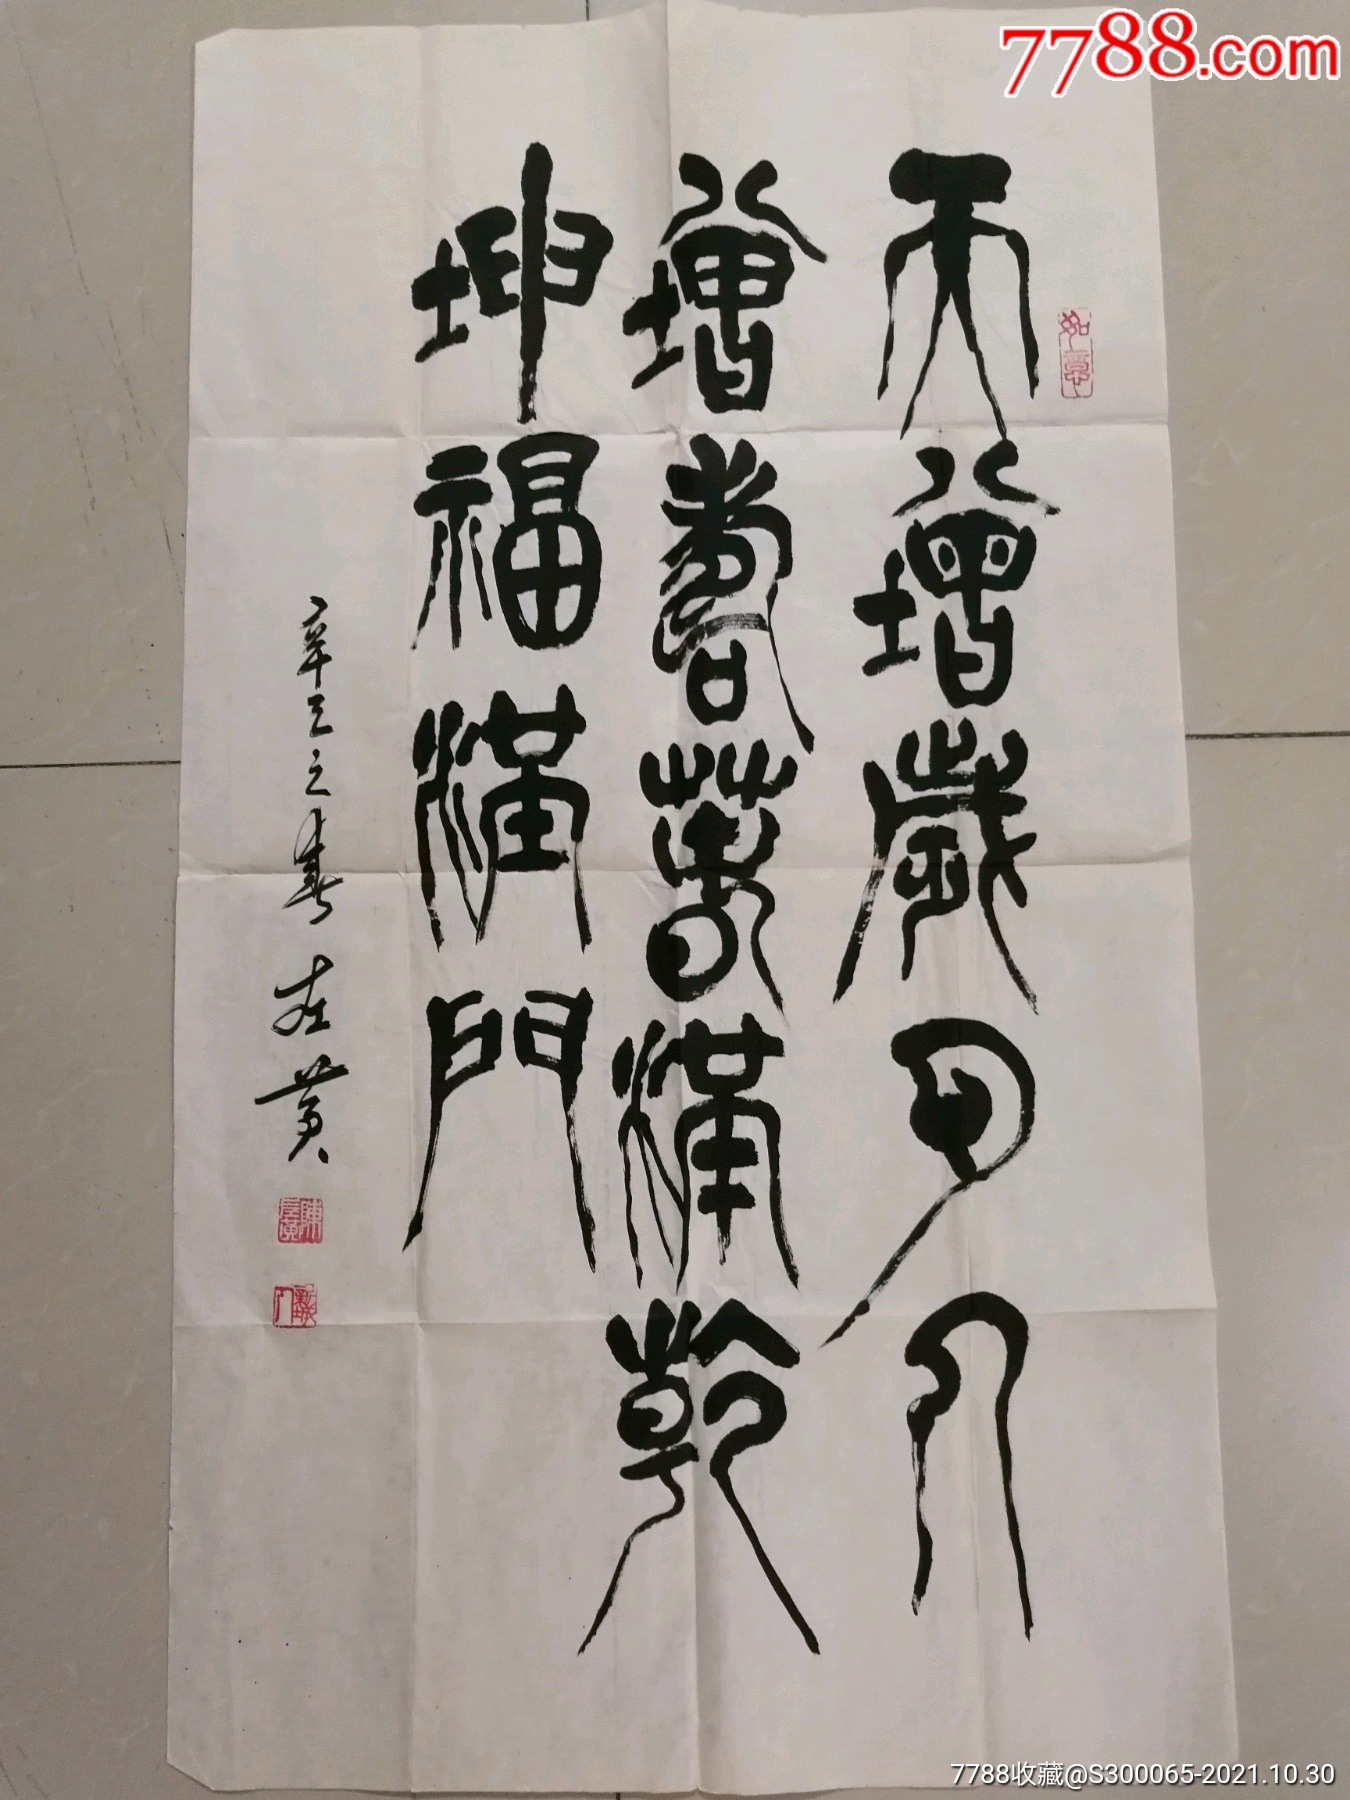 7788.com
如意
天增歲月人
增壽春滿乾
坤福滿門
辛巳之春
7788收藏@S300065-2021.10.30